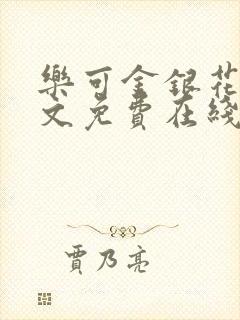 樂可金銀花
文免費在綫
賈乃亮